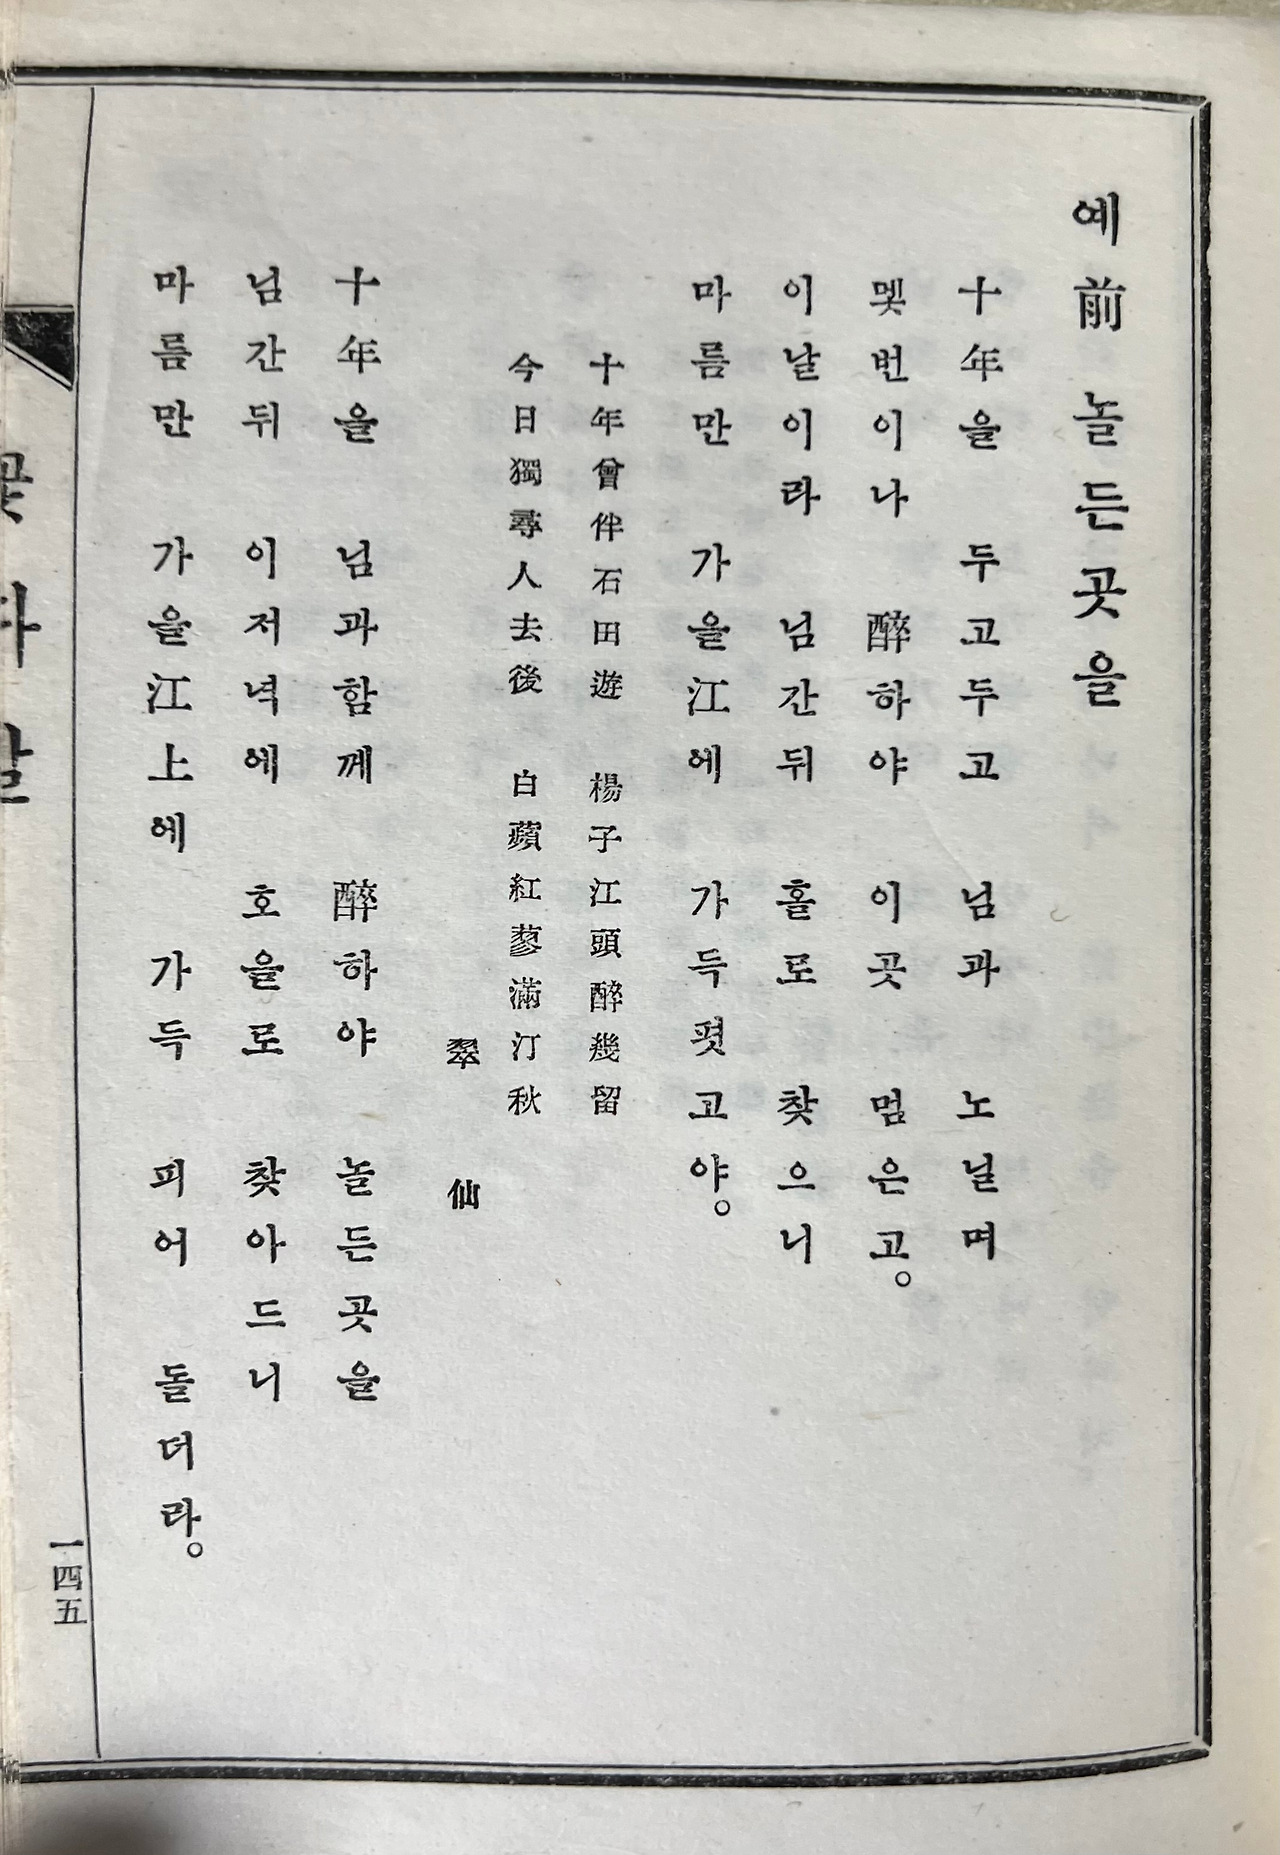 예前 놀든곳을
十年을 두고두고 님과 노닐며
멧번이나 醉하야 이곳 멈은고。
이날이라 님간뒤 홀로 찾으니
마름만 가을江에 가득폇고야。
十年曾伴石田遊 楊子江頭醉幾留
今日獨尋人去後 白蘋紅蓼滿汀秋
翠仙
十年을 님과함께 醉하야 놀든곳을
님간뒤 이저녁에 호을로 찾아드니
마름만 가을江上에 가득 피어 돌더라。
一四五